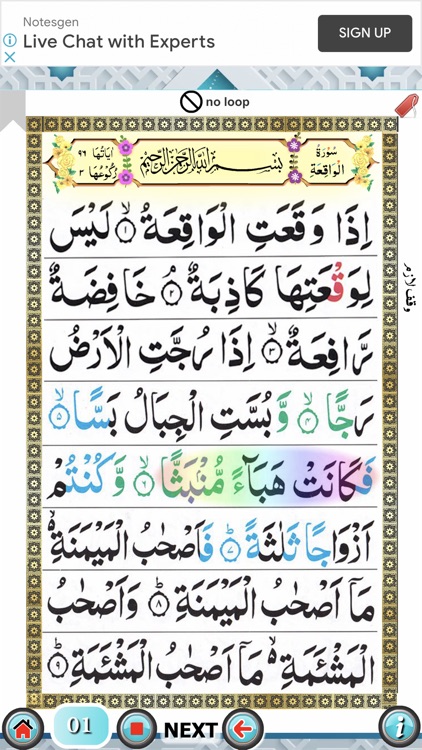 Notesgen
Live Chat with Experts
SIGN UP
no loop
سُوْرَةُ الْوَاقِعَةِ
بِسْمِ اللّٰهِ الرَّحْمٰنِ الرَّحِيْمِ
اٰيَاتُهَا ٩٦
رُكُوْعُهَا ٣
اِذَا وَقَعَتِ الْوَاقِعَةُ ۙ﴿١﴾ لَيْسَ
لِوَقْعَتِهَا كَاذِبَةٌ ۘ﴿٢﴾ خَافِضَةٌ
وقف لازم
رَّافِعَةٌ ۙ﴿٣﴾ اِذَا رُجَّتِ الْاَرْضُ
رَجًّا ۙ﴿٤﴾ وَّ بُسَّتِ الْجِبَالُ بَسًّا ۙ﴿٥﴾
فَكَانَتْ هَبَآءً مُّنْۢبَثًّا ۙ﴿٦﴾ وَّ كُنْتُمْ
اَزْوَاجًا ثَلٰثَةً ؕ﴿٧﴾ فَاَصْحٰبُ الْمَيْمَنَةِ ۙ۬
مَاۤ اَصْحٰبُ الْمَيْمَنَةِ ؕ﴿٨﴾ وَاَصْحٰبُ
الْمَشْـَٔمَةِ ۙ۬ مَاۤ اَصْحٰبُ الْمَشْـَٔمَةِ ؕ﴿٩﴾
01
NEXT
i